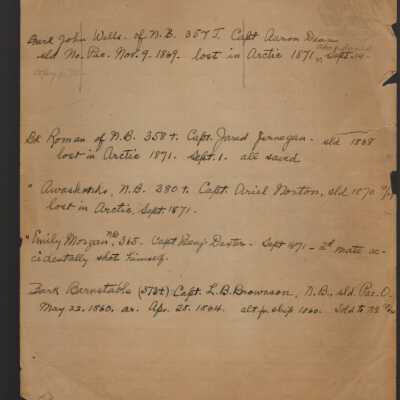 Bark John Wells. of N.B. 357 T. Capt Aaron Dean
sld No. Pac. Nov. 9. 1869. lost in Arctic 1871, Sept. 14.
abandoned
Bk Roman of N.B. 358 t. Capt. Jared Jernegan. sld 1868
lost in Arctic 1871. Sept. 1. all saved
" Awashonks, N.B. 380 t. Capt. Ariel Norton, sld 1870
lost in Arctic, Sept. 1871.
"Emily Morgan NB, 365. Capt Benj. Dexter. Sept 1871 - 2d mate ac-
cidentally shot himself.
Bark Barnstable (373t) Capt. L.B. Brownson, N.B., sld. Pac. O.
May 22. 1860. ar. Apr. 28. 1864. alt. fr. ship 1860. Sold to